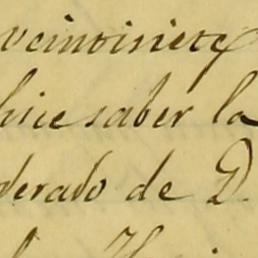 veintisiete
hice saber la
derado de D.